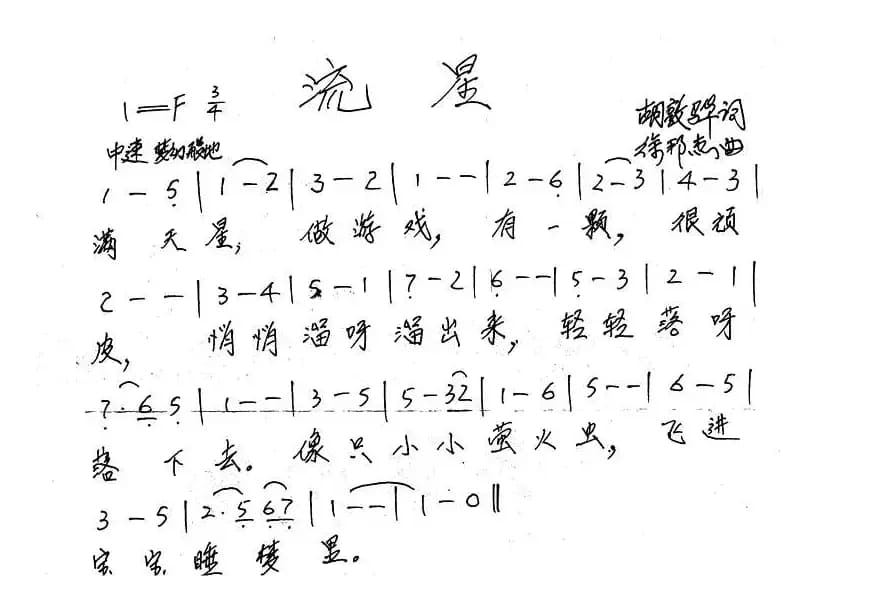 流星
1=F 3/4
胡敦骅词
中速 梦幻般地
徐邦杰曲
1 - 5̣ | 1 - 2 | 3 - 2 | 1 - - | 2 - 6̣ | 2 - 3 | 4 - 3 |
满天星, 做游戏, 有一颗, 很顽
2 - - | 3 - 4 | 5 - 1 | 7̣ - 2 | 6̣ - - | 5̣ - 3 | 2 - 1 |
皮, 悄悄溜呀溜出来, 轻轻落呀
7̣ · 6̣ 5̣ | 1 - - | 3 - 5 | 5 - 32 | 1 - 6 | 5 - - | 6 - 5 |
落下去。像只小小萤火虫, 飞进
3 - 5 | 2 · 5̣ 6̣7̣ | 1 - - | 1 - 0 ‖
宝宝睡梦里。